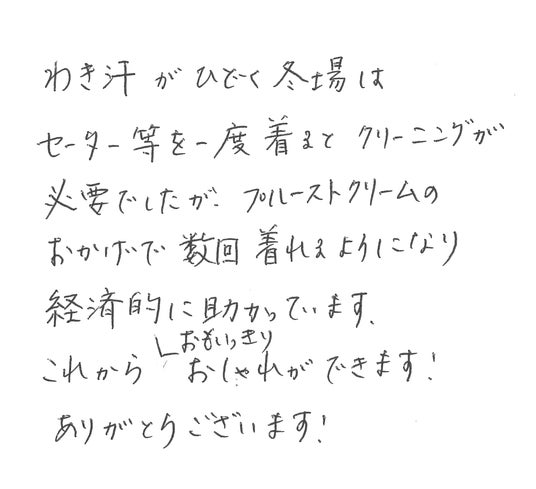 わき汗がひどく冬場は
セーター等を一度着ると クリーニングが
必要でしたが、プルーストクリームの
おかげで数回着れるようになり
経済的に助かっています。
これから おもいっきり おしゃれができます!
ありがとうございます!